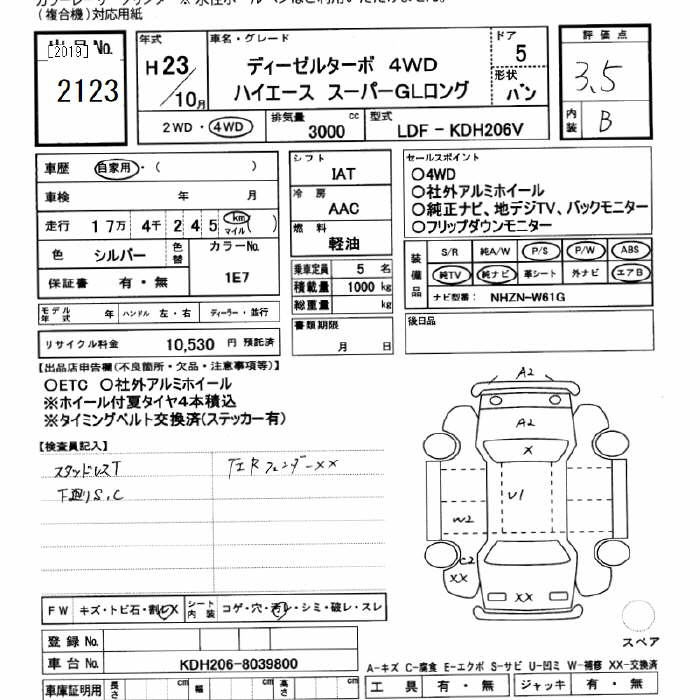 (複合機)対応用紙
出品No.
[2019]
2123
年式
H23
/10月
車名・グレード
ディーゼルターボ 4WD
ハイエース スーパーGLロング
ドア
5
形状
バン
評価点
3.5
内装
B
2WD・4WD
排気量
3000
cc
型式
LDF - KDH206V
車歴 自家用・( )
車検 年 月
走行 17万 4千 2 4 5 km マイル ( )
色 シルバー
色替
カラーNo.
1E7
保証書 有・無
シフト
IAT
冷房
AAC
燃料
軽油
乗車定員 5 名
積載量 1000 kg
総重量 kg
セールスポイント
○4WD
○社外アルミホイール
○純正ナビ、地デジTV、バックモニター
○フリップダウンモニター
装備品
S/R 純A/W P/S P/W ABS
純TV 純ナビ 革シート 外ナビ エアB
ナビ型番: NHZN-W61G
モデル年式 年 ハンドル 左・右 ディーラー・並行
書類期限
月 日
後日品
リサイクル料金 10,530 円 預託済
【出品店申告欄(不良箇所・欠品・注意事項等)】
○ETC ○社外アルミホイール
※ホイール付夏タイヤ4本積込
※タイミングベルト交換済(ステッカー有)
【検査員記入】
スタッドレスT
下廻りS.C
左Rフェンダー××
A2
A2
X
U1
W2
C2
XX
XX
FW キズ・トビ石・割レX
シート内装 コゲ・穴・汚レ・シミ・破レ・スレ
スペア
登録 No.
車台 No. KDH206-8039800
A-キズ C-腐食 E-エクボ S-サビ U-凹ミ W-補修 XX-交換済
車庫証明用 長さ cm 幅 cm 高さ cm
工具 有・無 ジャッキ 有・無